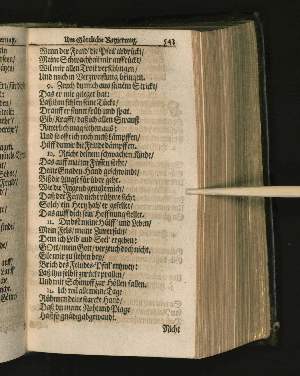 Um Göttliche Regierung. 543
Wann der Feind die Pfeil abdrückt/
Meine Schwachheit mir auffrückt/
Wil mir allen Trost verschlingen/
Und mich in Verzweifflung bringen.
9. Zeuch du mich aus seinem Stricke/
Das er mir geleget hat:
Laß ihm fehlen seine Tücke/
Drauff er sinnet früh und spat.
Gib Krafft/ daß ich allen Strauß
Ritterlich mag stehen aus:
Und so offt ich noch muß kämpffen/
Hilff du mir die Feinde dämpffen.
10. Reiche deinem schwachen Kinde/
Das auff matten Füssen steht/
Deine Gnaden-Hand geschwinde/
Biß die Angst fürüber geht.
Wie die Jugend gängle mich/
Daß der Feind nicht rühme sich:
Solch ein Hertz hab' er gefället/
Das auff dich sein Hoffnung stellet.
11. Du bist meine Hülff und Leben/
Mein Fels/ meine Zuversicht/
Dem ich Leib und Seel' ergeben:
Gott/ mein Gott/ verzeuch doch nicht.
Eile mir zu stehen bey/
Brich des Feindes Pfeil' entzwey:
Laß ihn selbst zurücke prallen/
Und mit Schimpff zur Höllen fallen.
12. Ich wil alle meine Tage
Rühmen deine starcke Hand/
Daß du meine Noht und Plage
Hast so gnädig abgewandt.
Nicht